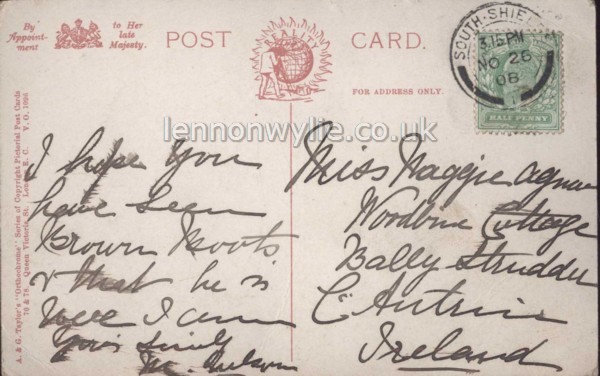 By Appoint-ment
to Her late Majesty.
POST CARD.
FOR ADDRESS ONLY.
SOUTH-SHIE
3.15 PM
NO 26
06
HALF PENNY
lennonwylie.co.uk
A. & G. Taylor's "Orthochrome" Series of Copyright Pictorial Post Cards
70 & 78, Queen Victoria, St. London E. C.
I hope you
have seen
Brown Boots
& that he is
well I am
Yours
M.
Miss Maggie Agnew
Woodbine Cottage
Bally
Co Antrim
Ireland